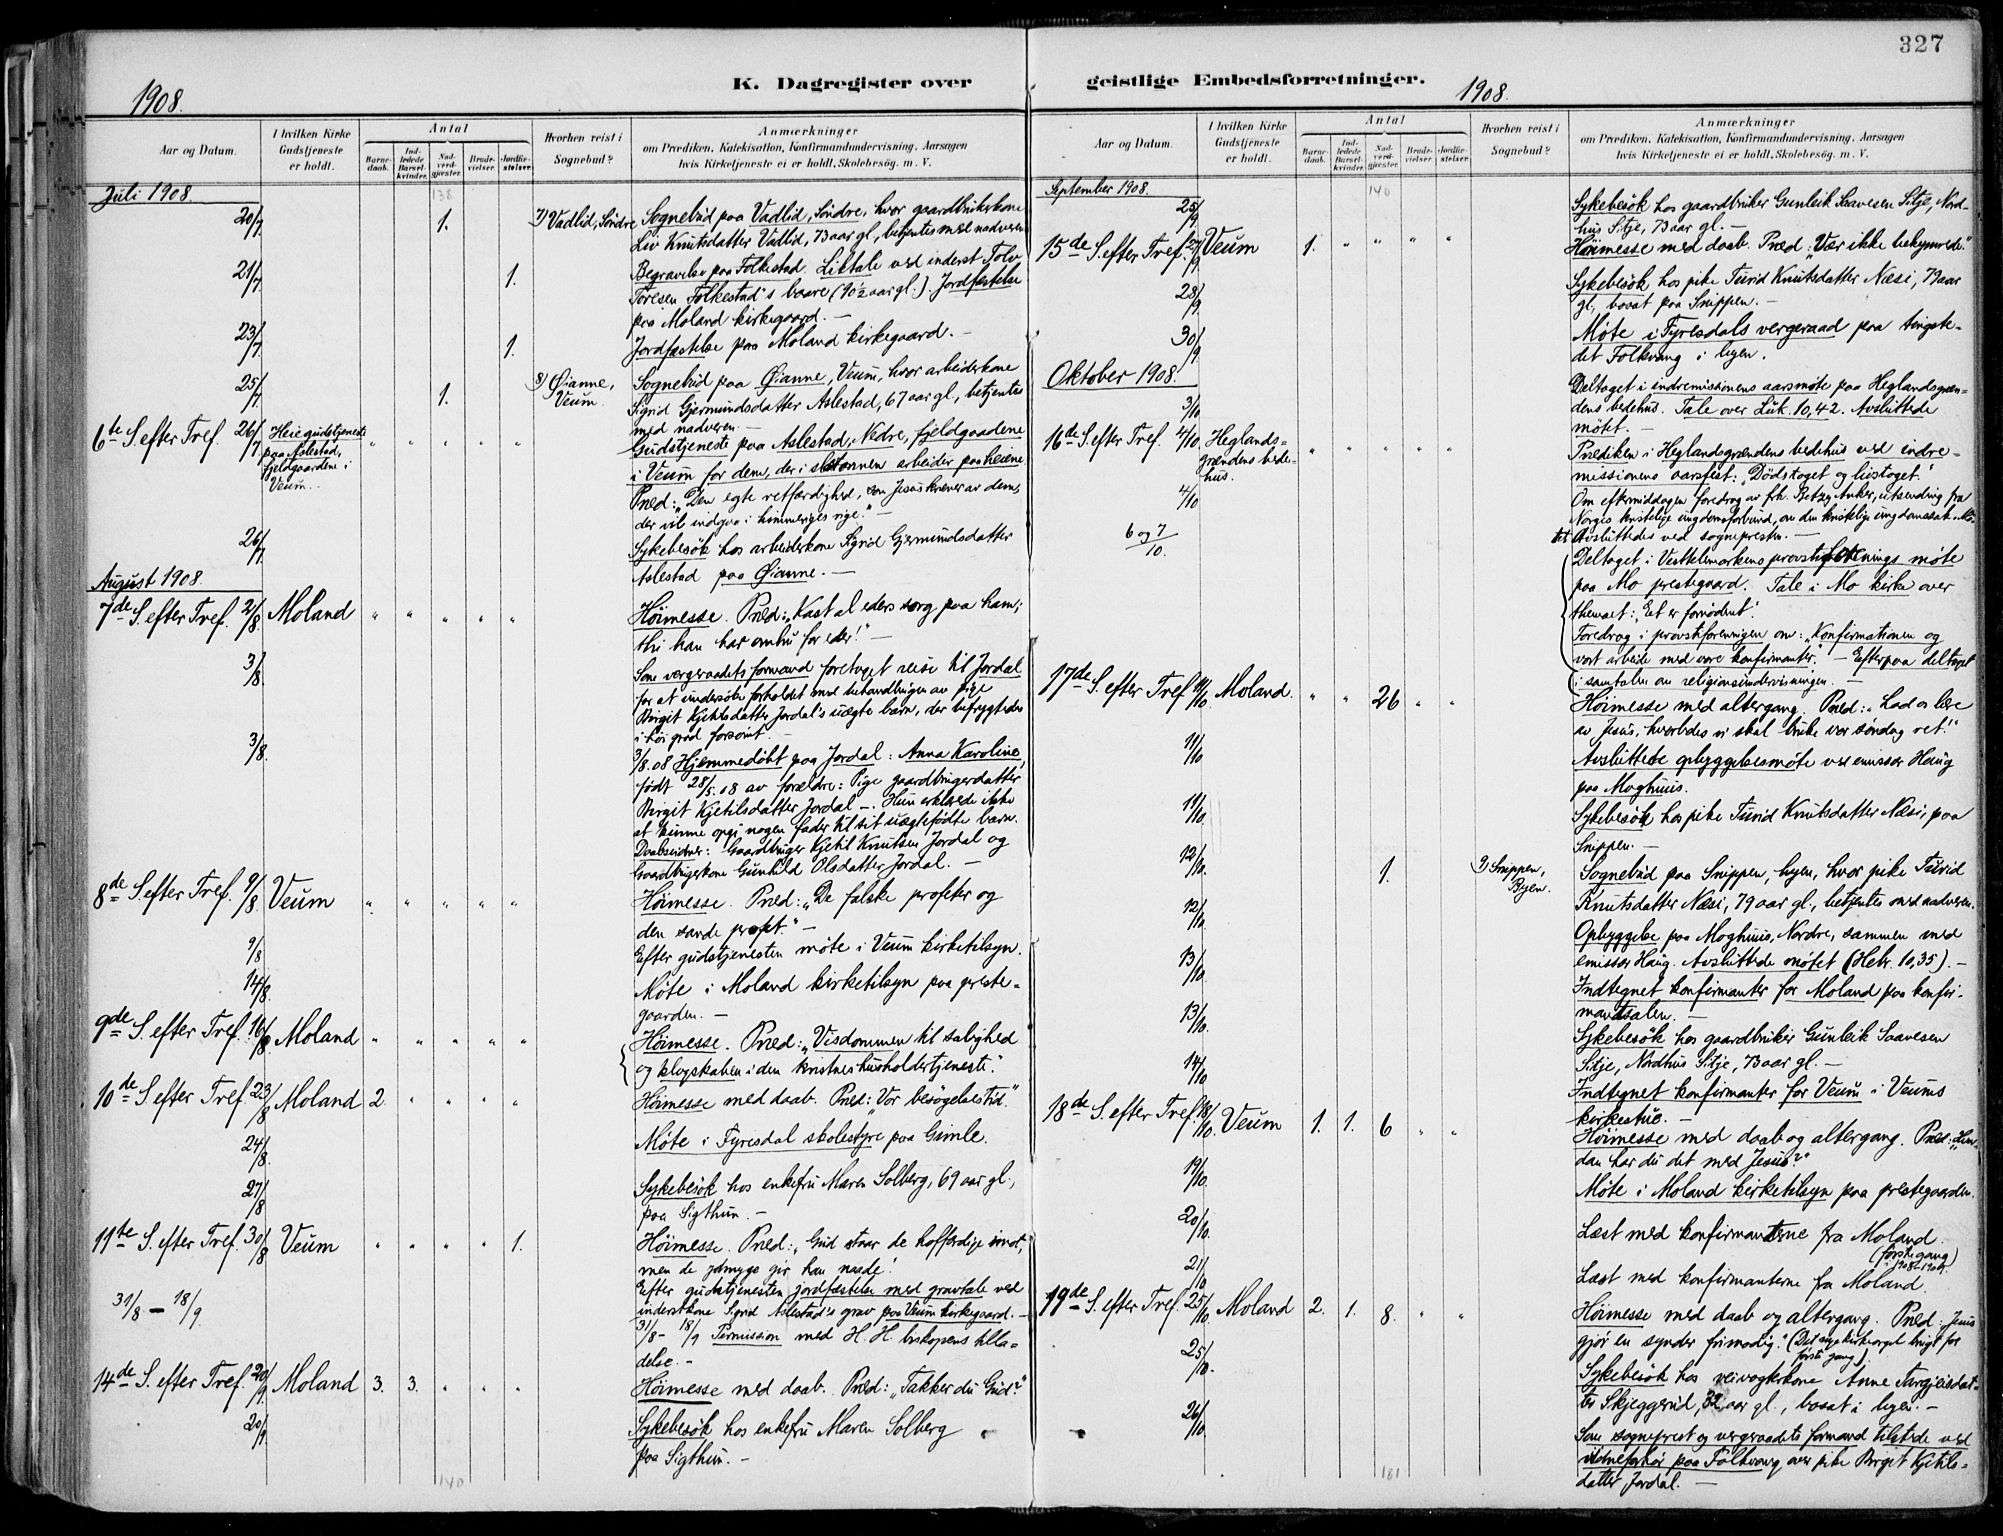 327
K. Dagregister over geistlige Embedsforretninger.
1908.
Aar og Datum.
I hvilken Kirke Gudstjeneste er holdt.
Antal
Barnedaab.
Indledede Barselkvinder.
Nadverdgjæster.
Brudevielser.
Jordfæstelser.
Hvorhen reist i Sognebud?
Anmærkninger
om Prædiken, Katekisation, Konfirmandundervisning, Aarsagen
hvis Kirketjeneste ei er holdt, Skolebesøg. m. V.
Juli 1908.
138
20/7. 1. 7) Vadlid, Söndre Sognebud paa Vadlid, Söndre, hvor gaardbrukerkone
Liv Knutsdatter Vadlid, 73 aar gl, betjentes med nadveren
21/7 1. Begravelse paa Folkestad. Liktale ved inderst Tolv
Toresen Folkestad's baare (90½ aar gl.) Jordfæstelse
paa Moland kirkegaard. —
23/7. 1. Jordfæstelse paa Moland kirkegaard. —
25/7. 1. 8) Øianne, Veum. Sognebud paa Øianne, Veum, hvor arbeiderkone
Sigrid Gjermundsdatter Aslestad, 67 aar gl, betjentes
med nadveren. —
6te S. efter Tref. 26/7. Heiegudstjeneste paa Aslestad, fjeldgaardene i Veum. " " " " " Gudstjeneste paa Aslestad, Nedre, fjeldgaardene
i Veum for dem, der i slaatonnen arbeider paa heiene
Præd: „Den egte retfærdighed, som Jesus kræver av dem,
der vil indgaa i himmeriges rige." —
26/7. Sykebesök hos arbeiderkone Sigrid Gjermundsdatter
Aslestad paa Øianne. —
August 1908.
7de S. efter Tref. 2/8. Moland " " " " " Höimesse. Præd: „Kast al eders sorg paa ham;
thi han har omhu for eder!" —
3/8. Som vergeraadets formand foretaget reise til Jordal
for at undersöke forholdet med behandlingen av pige
Birgit Kjetilsdatter Jordal's uægte barn, der befrygtedes
i höi grad forsömt. —
3/8. 3/8.08 Hjemmedöbt paa Jordal: Anna Karoline,
födt 28/5.08 av forældre: Pige gaardbrugerdatter
Birgit Kjetilsdatter Jordal —. Hun erklærede ikke
at kunne opgi nogen fader til sit uægtefödte barn.
Daabsvidner: Gaardbruger Kjetil Knutsen Jordal og
Gaardbrugerkone Gunhild Olsdatter Jordal. —
8de S. efter Tref. 9/8. Veum " " " " " Höimesse. Præd: „De falske profeter og
den sande profet." —
9/8 Efter gudstjenesten möte i Veum kirketilsyn.
14/8. Möte i Moland kirketilsyn paa preste-
gaarden. —
9de S. efter Tref. 16/8 Moland " " " " " Höimesse. Præd: „Visdommen til salighed
og klogskaben i den kristnes husholdertjeneste."
10de S. efter Tref. 23/8 Moland 2. " " " " Höimesse med daab. Præd: „Vor besögelsestid."
24/8. Möte i Fyresdal skolestyre paa Gimle.
27/8 Sykebesök hos enkefru Maren Solberg, 69 aar gl.,
paa Sigthun. —
11te S. efter Tref. 30/8 Veum " " " " 1. Höimesse. Præd: „Gud staar de hoffærdige imot,
men de ydmyge gir han naade!
Efter gudstjenesten jordfæstelse med gravtale ved
inderstkone Sigrid Aslestad's grav paa Veum kirkegaard. —
31/8 — 18/9. 31/8 - 18/9 Permission med H. H. biskopens tilla-
delse. —
14de S. efter Tref. 20/9. Moland 3. 3. " " " Höimesse med daab. Præd: „Takker du Gud?"
20/9. Sykebesök hos enkefru Maren Solberg
paa Sigthun. —
140
1908.
Aar og Datum.
I hvilken Kirke Gudstjeneste er holdt.
Antal
Barnedaab.
Indledede Barselkvinder.
Nadverdgjæster.
Brudevielser.
Jordfæstelser.
Hvorhen reist i Sognebud?
Anmærkninger
om Prædiken, Katekisation, Konfirmandundervisning, Aarsagen
hvis Kirketjeneste ei er holdt, Skolebesög. m. V.
September 1908.
140
25/9. Sykebesök hos gaardbruker Gunleik Saavesen Sitje, Nord-
hus Sitje, 73 aar gl. —
15de S. efter Tref. 27/9. Veum 1. " " " " Höimesse med daab. Præd: „Vær ikke bekymrede."
28/9. Sykebesök hos pike Turid Knutsdatter Næsi, 79 aar
gl., bosat paa Snippen. —
30/9. Möte i Fyresdals vergeraad paa tingste-
det Folkvang i byen.
Oktober 1908.
3/10 Deltaget i indremissionens aarsmöte paa Heglandsgræn-
dens bedehus. Tale over Luk. 10,42. Avsluttede
mötet. —
16de S. efter Tref. 4/10. Heglandsgrændens bedehus. " " " " " Prædiken i Heglandsgrændens bedehus ved indre-
missionens aarsfest: „Dödstoget og livstoget."
4/10 Om eftermiddagen foredrag av frk. Betzy Anker, utsending fra
Norges kristelige ungdomsforbund, om den kristelige ungdomssak. Mö-
tet avsluttedes ved sognepresten. —
6 og 7/10. Deltaget i Vesttelemarkens provstiforenings möte
paa Mo prestegaard. Tale i Mo kirke over
themaet: „Eet er fornödent".
Foredrag i provstiforeningen om: „Konfirmationen og
vort arbeide med vore konfirmanter." — Efterpaa deltaget
i samtalen om religionsundervisningen. —
17de S. efter Tref. 11/10. Moland. " " 26 " " Höimesse med altergang. Præd: „Lad os lære
av Jesus, hvorledes vi skal bruke vor söndag ret!"
11/10 Avsluttede opbyggelsesmöte ved emissær Haug
paa Moghuus.
11/10. Sykebesök hos pike Turid Knutsdatter Næsi, paa
Snippen. —
12/10. 1. 9) Snippen, Byen. Sognebud paa Snippen, byen, hvor pike Turid
Knutsdatter Næsi, 79 aar gl., betjentes med nadveren.
12/10. Opbyggelse paa Moghuus, Nordre, sammen med
emissær Haug. Avsluttede mötet (Hebr. 10,35). —
13/10. Indtegnet konfirmanter for Moland paa konfir-
mantsalen. —
13/10. Sykebesök hos gaardbruker Gunleik Saavesen
Sitje, Nordhus Sitje, 73 aar gl. —
14/10 Indtegnet konfirmanter for Veum i Veums
kirkestue. —
18de S. efter Tref. 18/10. Veum 1. 1. 6 " " Höimesse med daab og altergang. Præd: „Hvor-
dan har du det med Jesus?"
19/10. Möte i Moland kirketilsyn paa prestegaarden.
20/10. Læst med konfirmanterne fra Moland.
(förste gang 1908-1909).
21/10 Læst med konfirmanterne fra Moland.
19de S. efter Tref. 25/10. Moland 2. 1. 8. " " Höimesse med daab og altergang. Præd: „Jesus
gjör en synder frimodig." (Det nye kirkeorgel brugt for
förste gang)
25/10. Sykebesök hos veivogterkone Anne Targjeisdat-
ter Skjeggerud, 32 aar gl., bosat i byen. —
26/10. Som sogneprest og vergeraadets formand tilstede ved
vidneforhör paa Folkvang over pike Birgit Kjetils-
datter Jordal. —
181